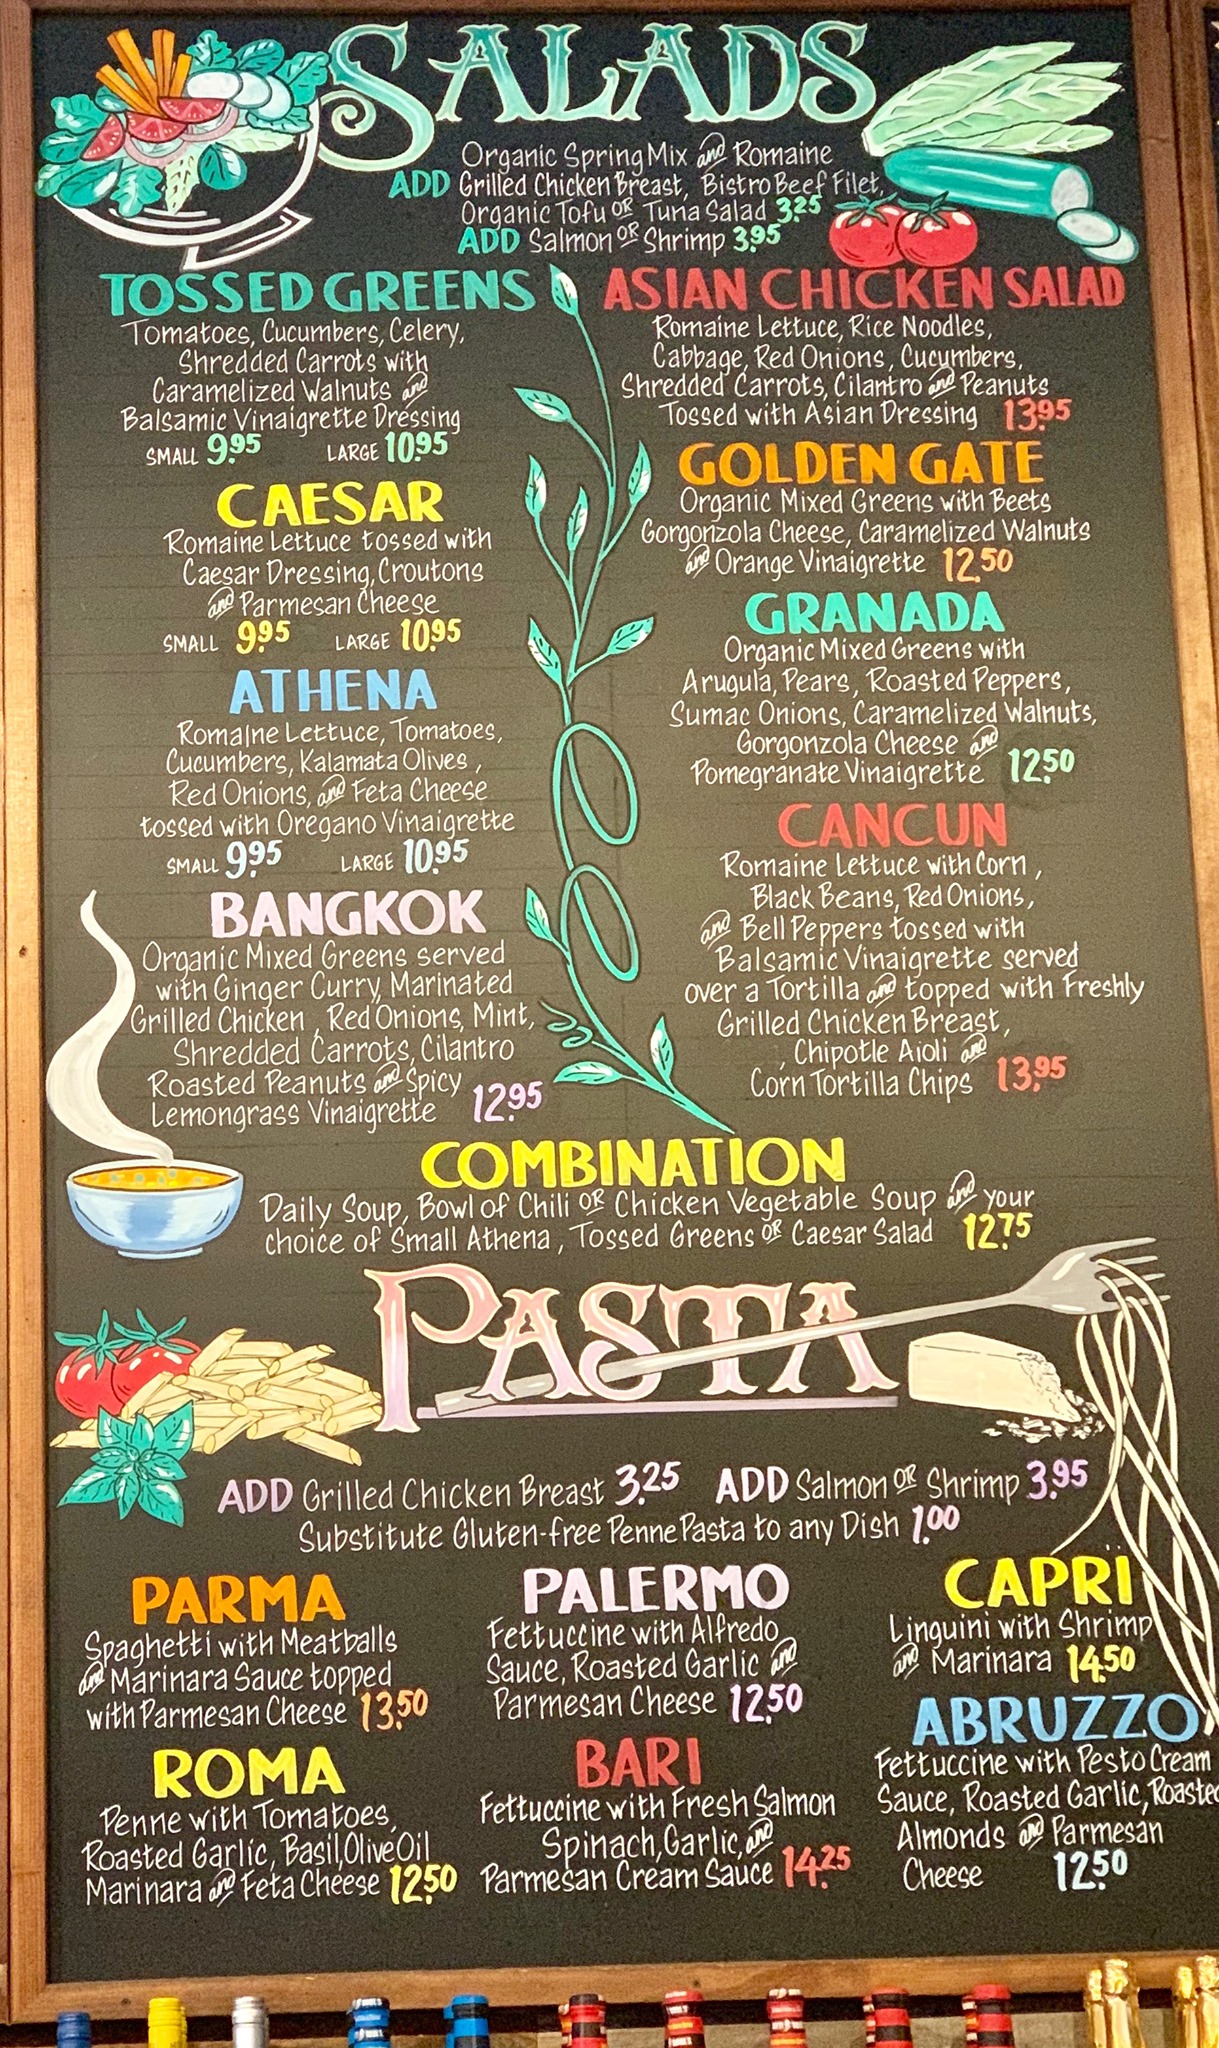 SALADS
Organic Spring Mix and Romaine
ADD Grilled Chicken Breast, Bistro Beef Filet,
Organic Tofu OR Tuna Salad 3.25
ADD Salmon OR Shrimp 3.95
TOSSED GREENS
Tomatoes, Cucumbers, Celery,
Shredded Carrots with
Caramelized Walnuts and
Balsamic Vinaigrette Dressing
SMALL 9.95 LARGE 10.95
CAESAR
Romaine Lettuce tossed with
Caesar Dressing, Croutons
and Parmesan Cheese
SMALL 9.95 LARGE 10.95
ATHENA
Romaine Lettuce, Tomatoes,
Cucumbers, Kalamata Olives,
Red Onions, and Feta Cheese
tossed with Oregano Vinaigrette
SMALL 9.95 LARGE 10.95
BANGKOK
Organic Mixed Greens served
with Ginger Curry, Marinated
Grilled Chicken, Red Onions, Mint,
Shredded Carrots, Cilantro
Roasted Peanuts and Spicy
Lemongrass Vinaigrette 12.95
ASIAN CHICKEN SALAD
Romaine Lettuce, Rice Noodles,
Cabbage, Red Onions, Cucumbers,
Shredded Carrots, Cilantro and Peanuts
Tossed with Asian Dressing 13.95
GOLDEN GATE
Organic Mixed Greens with Beets
Gorgonzola Cheese, Caramelized Walnuts
and Orange Vinaigrette 12.50
GRANADA
Organic Mixed Greens with
Arugula, Pears, Roasted Peppers,
Sumac Onions, Caramelized Walnuts,
Gorgonzola Cheese and
Pomegranate Vinaigrette 12.50
CANCUN
Romaine Lettuce with Corn,
Black Beans, Red Onions,
and Bell Peppers tossed with
Balsamic Vinaigrette served
over a Tortilla and topped with Freshly
Grilled Chicken Breast,
Chipotle Aioli and
Corn Tortilla Chips 13.95
COMBINATION
Daily Soup, Bowl of Chili OR Chicken Vegetable Soup and your
choice of Small Athena, Tossed Greens OR Caesar Salad 12.75
PASTA
ADD Grilled Chicken Breast 3.25 ADD Salmon OR Shrimp 3.95
Substitute Gluten-free Penne Pasta to any Dish 1.00
PARMA
Spaghetti with Meatballs
and Marinara Sauce topped
with Parmesan Cheese 13.50
ROMA
Penne with Tomatoes,
Roasted Garlic, Basil, Olive Oil
Marinara and Feta Cheese 12.50
PALERMO
Fettuccine with Alfredo
Sauce, Roasted Garlic and
Parmesan Cheese 12.50
BARI
Fettuccine with Fresh Salmon
Spinach, Garlic, and
Parmesan Cream Sauce 14.25
CAPRI
Linguini with Shrimp
and Marinara 14.50
ABRUZZO
Fettuccine with Pesto Cream
Sauce, Roasted Garlic, Roasted
Almonds and Parmesan
Cheese 12.50